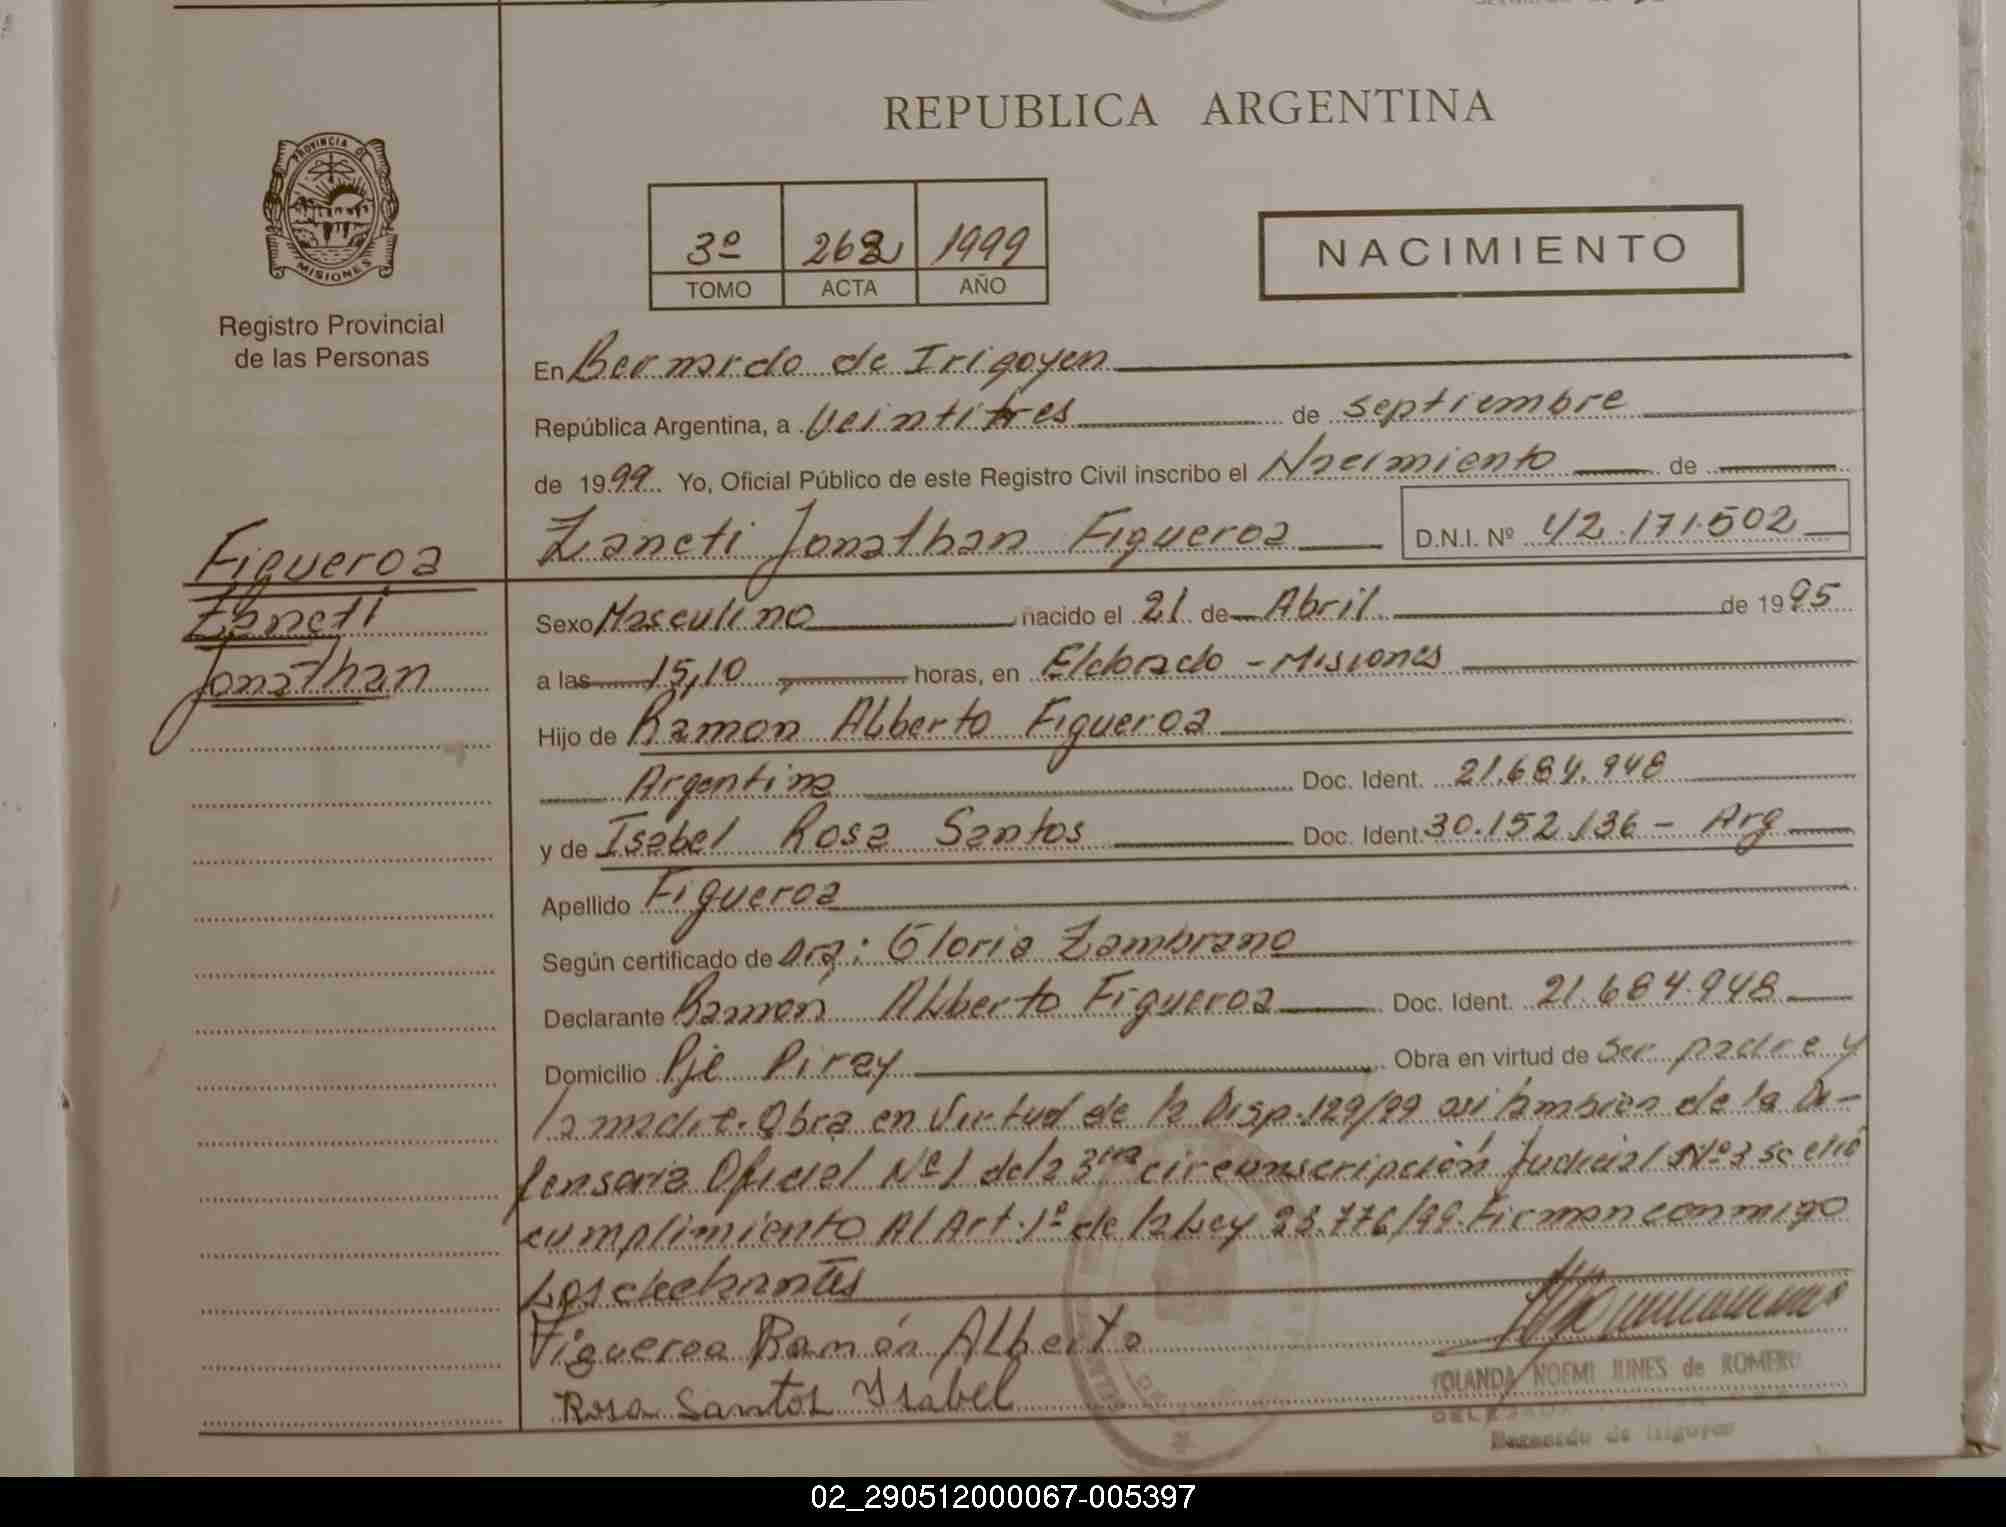 REPUBLICA ARGENTINA
PROVINCIA DE
MISIONES
Registro Provincial
de las Personas
3º 262 1999
TOMO ACTA AÑO
NACIMIENTO
En Bernardo de Irigoyen
República Argentina, a Veintitres de septiembre
de 1999. Yo, Oficial Público de este Registro Civil inscribo el Nacimiento de
Zancti Jonathan Figueroa D.N.I. Nº 42.171.502
Figueroa
Zancti
Jonathan
Sexo Masculino nacido el 21 de Abril de 1995
a las 15,10 horas, en Eldorado - Misiones
Hijo de Ramon Alberto Figueroa
Argentina Doc. Ident. 21.684.948
y de Isabel Rosa Santos Doc. Ident. 30.152.136 - Arg
Apellido Figueroa
Según certificado de Dra: Gloria Zambrano
Declarante Ramón Alberto Figueroa Doc. Ident. 21.684.948
Domicilio Pje Piray Obra en virtud de Ser padre y
la madre. Obra en Virtud de la Disp. 129/99 asi tambien de la De-
fensoria Oficial Nº 1 de la 3ra circunscripción Judicial Nº 3 se dió
cumplimiento Al Art. 1º de la Ley 23.776/99. Firman conmigo
Los declarantes
Figueroa Ramón Alberto
Rosa Santos Isabel
YOLANDA NOEMI JUNES de ROMERO
Bernardo de Irigoyen
02_290512000067-005397